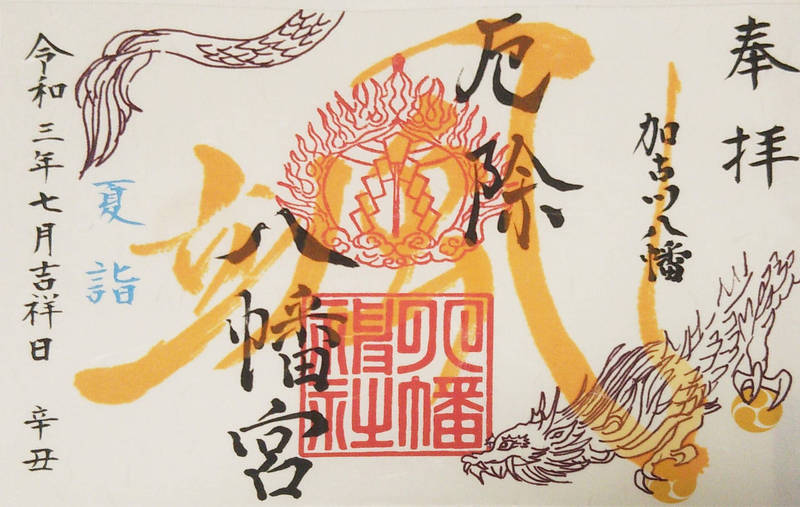 奉拝
加古川八幡
厄除
八幡宮
八幡神社
夏詣
令和三年七月吉祥日 辛丑